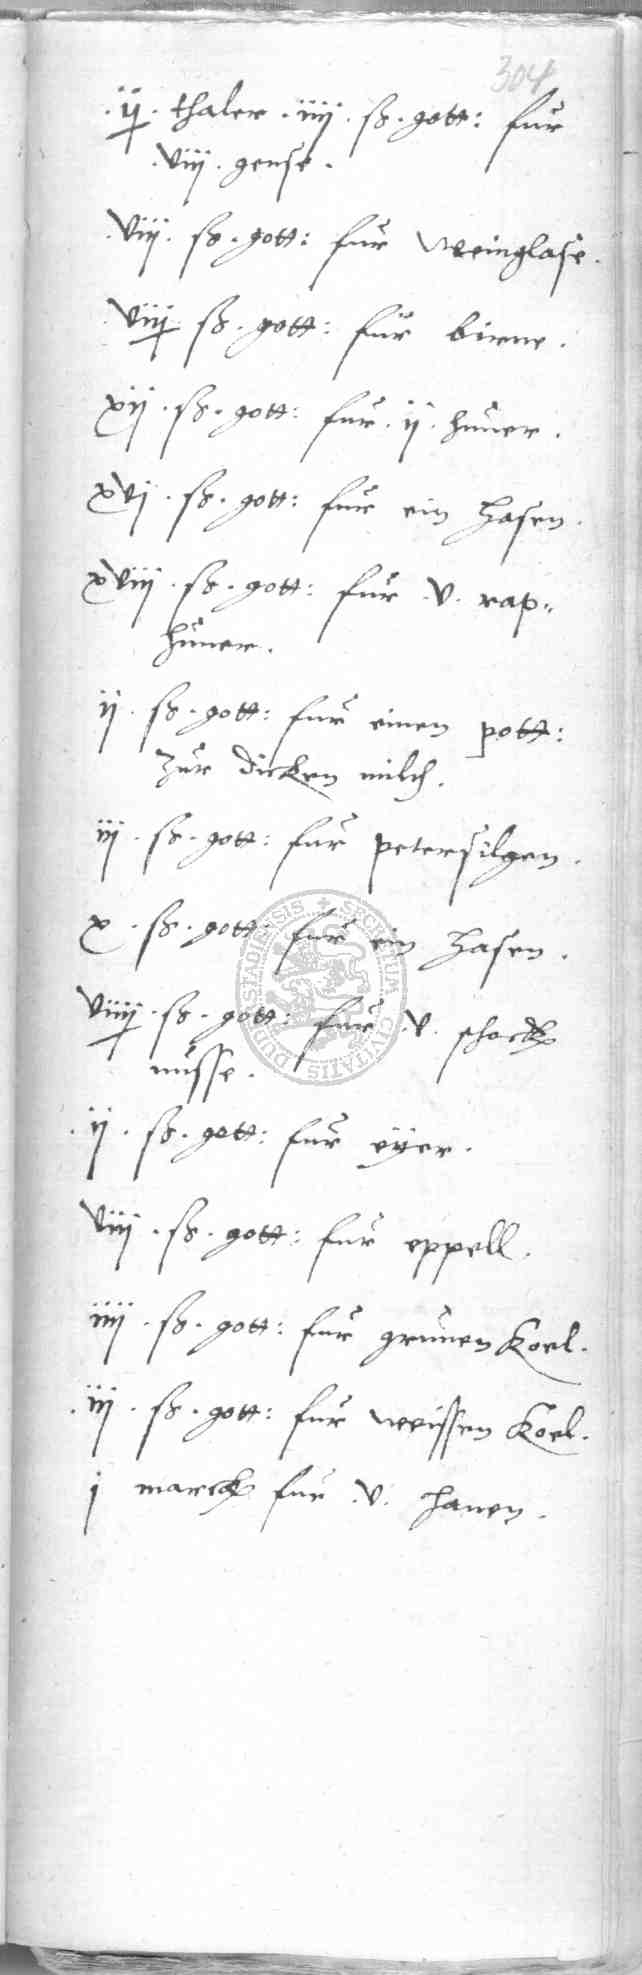 304
·ij· thaler · iiij · ß · gott: fur
·viij · gense ·
·viij· ß · gott: fur weinglase ·
·viij ß · gott: fur birne ·
xij · ß · gott: fur · ij · huner ·
xvj · ß · gott: fur ein hasen ·
xviij · ß · gott: fur · v · rap=
huner ·
ij · ß · gott: fur einen pott:
zur dicken milch ·
iij · ß · gott: fur petersilgen ·
x · ß · gott: fur ein hasen ·
viiij · ß · gott: fur · v · schock
nusse ·
· ij · ß · gott: fur eyer ·
viij · ß · gott: fur eppell ·
iiij · ß · gott: fur grunen Koel ·
· iij · ß · gott: fur weissen Koel ·
j marck fur · v · hanen ·
SECRETUM CIVITATIS DUDERSTADIENSIS